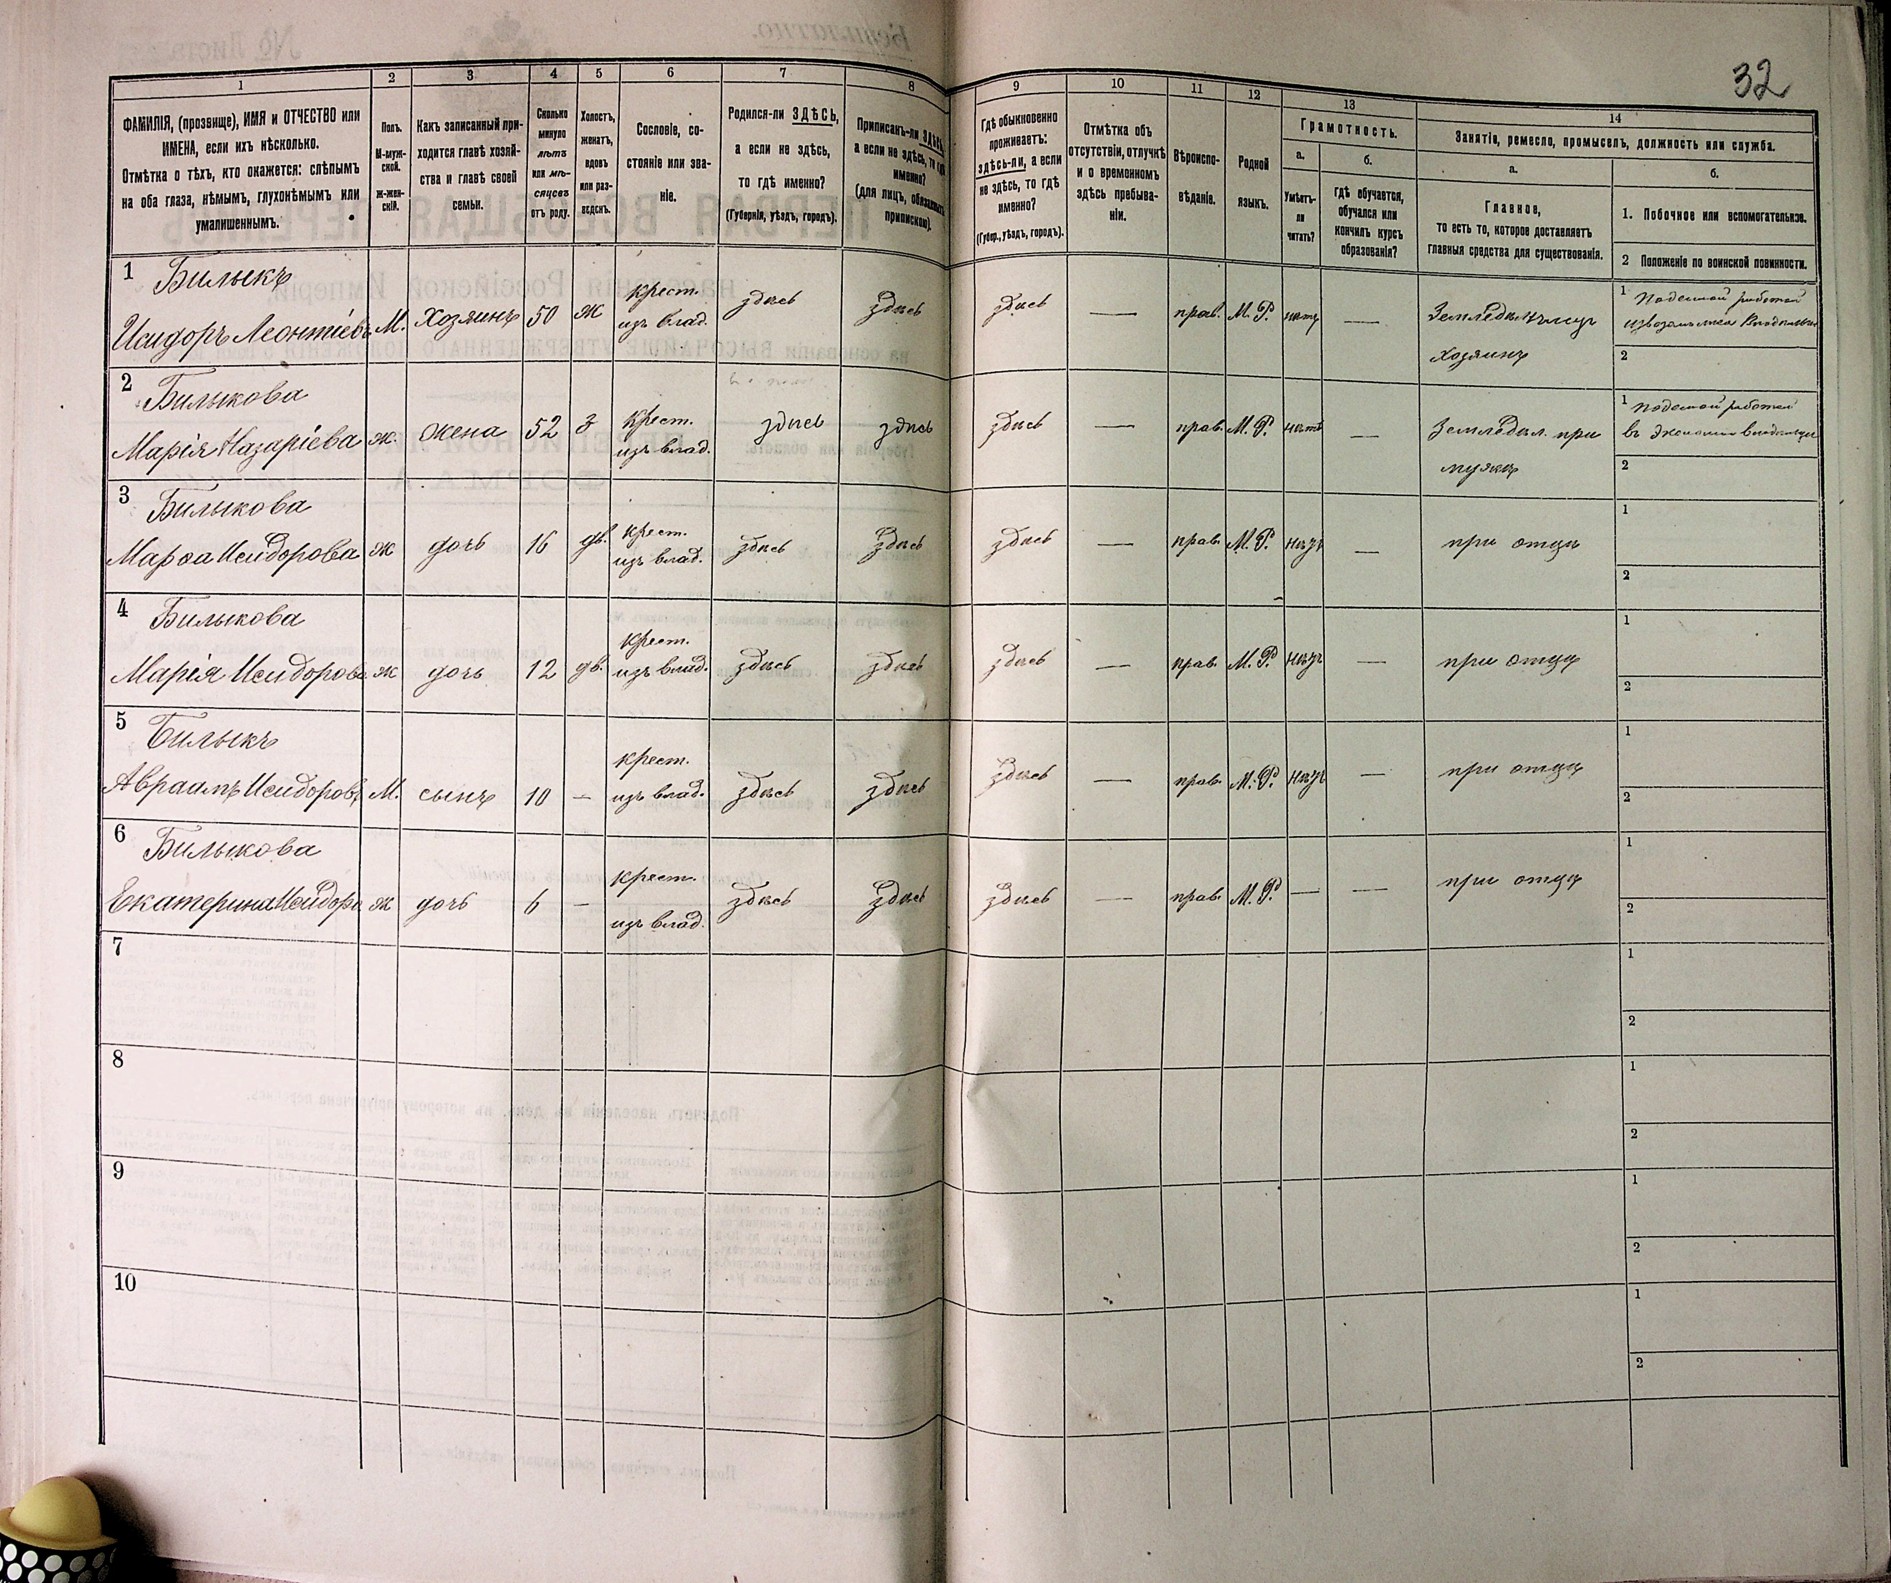 32
1
2
3
4
5
6
7
8
9
10
11
12
13
14
ФАМИЛІЯ, (прозвище), ИМЯ и ОТЧЕСТВО или
ИМЕНА, если ихъ нѣсколько.
Отмѣтка о тѣхъ, кто окажется: слѣпымъ
на оба глаза, нѣмымъ, глухонѣмымъ или
умалишеннымъ.
Полъ.
М-муж-
ской.
ж-жен-
скій.
Какъ записанный при-
ходится главѣ хозяй-
ства и главѣ своей
семьи.
Сколько
минуло
лѣтъ
или мѣ-
сяцевъ
отъ роду.
Холостъ,
женатъ,
вдовъ
или раз-
веденъ.
Сословіе, со-
стояніе или зва-
ніе.
Родился-ли ЗДѢСЬ,
а если не здѣсь,
то гдѣ именно?
(Губернія, уѣздъ, городъ).
Приписанъ-ли ЗДѢСЬ,
а если не здѣсь, то гдѣ
именно?
(для лицъ, обязанныхъ
припискою).
Гдѣ обыкновенно
проживаетъ:
здѣсь-ли, а если
не здѣсь, то гдѣ
именно?
(Губер., уѣздъ, городъ).
Отмѣтка объ
отсутствіи, отлучкѣ
и о временномъ
здѣсь пребыва-
ніи.
Вѣроиспо-
вѣданіе.
Родной
языкъ.
Грамотность.
а.
Умѣетъ-
ли
читать?
б.
гдѣ обучается,
обучался или
кончилъ курсъ
образованія?
Занятія, ремесло, промыселъ, должность или служба.
а.
Главное,
то есть то, которое доставляетъ
главныя средства для существованія.
б.
1. Побочное или вспомогательное.
2 Положеніе по воинской повинности.
1 Билыкъ
Исидоръ Леонтіевъ М. Хозяинъ 50 ж крест.
изъ влад. здѣсь здѣсь здѣсь — прав. М. Р. нѣтъ — Земледѣлецъ
хозяинъ
1 Поденной работой
2
2 Билыкова
Марія Назаріева ж. жена 52 з крест.
изъ влад. здѣсь здѣсь здѣсь — прав. М. Р. нѣтъ — Земледѣл. при
мужѣ
1 Поденной работой
въ экономіи владѣльца
2
3 Билыкова
Марѳа Исидорова ж дочь 16 дѣв. крест.
изъ влад. здѣсь здѣсь здѣсь — прав. М. Р. нѣтъ — при отцѣ
1
2
4 Билыкова
Марія Исидорова ж дочь 12 дѣв. крест.
изъ влад. здѣсь здѣсь здѣсь — прав. М. Р. нѣтъ — при отцѣ
1
2
5 Билыкъ
Авраамъ Исидоровъ М. сынъ 10 — крест.
изъ влад. здѣсь здѣсь здѣсь — прав. М. Р. нѣтъ — при отцѣ
1
2
6 Билыкова
Екатерина Исидоро ж дочь 6 — крест.
изъ влад. здѣсь здѣсь здѣсь — прав. М. Р. — — при отцѣ
1
2
7
1
2
8
1
2
9
1
2
10
1
2